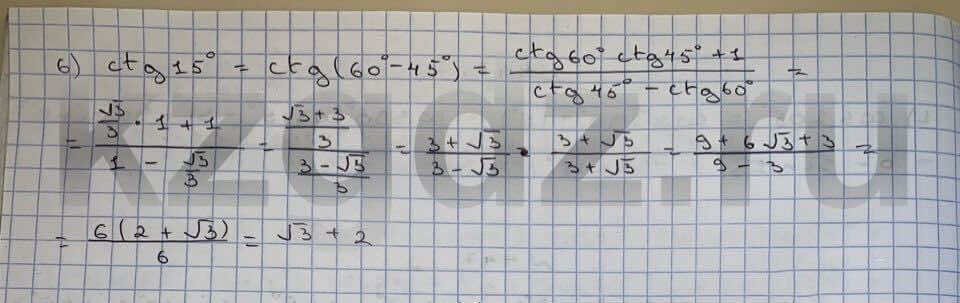 6) ctg 15° = ctg (60° - 45°) = (ctg 60° ctg 45° + 1) / (ctg 45° - ctg 60°) =
= (√3/3 · 1 + 1) / (1 - √3/3) = ((√3 + 3)/3) / ((3 - √3)/3) = (3 + √3)/(3 - √3) · (3 + √3)/(3 + √3) = (9 + 6√3 + 3)/(9 - 3) =
= 6(2 + √3)/6 = √3 + 2
kzgdz.ru